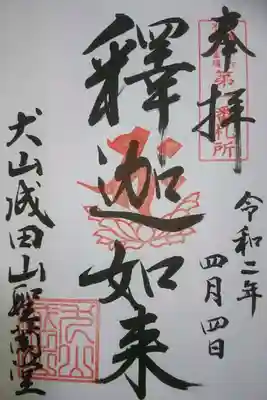 奉拝
第 番札所
令和二年
四月四日
釋迦如来
犬山成田山聖蘭堂